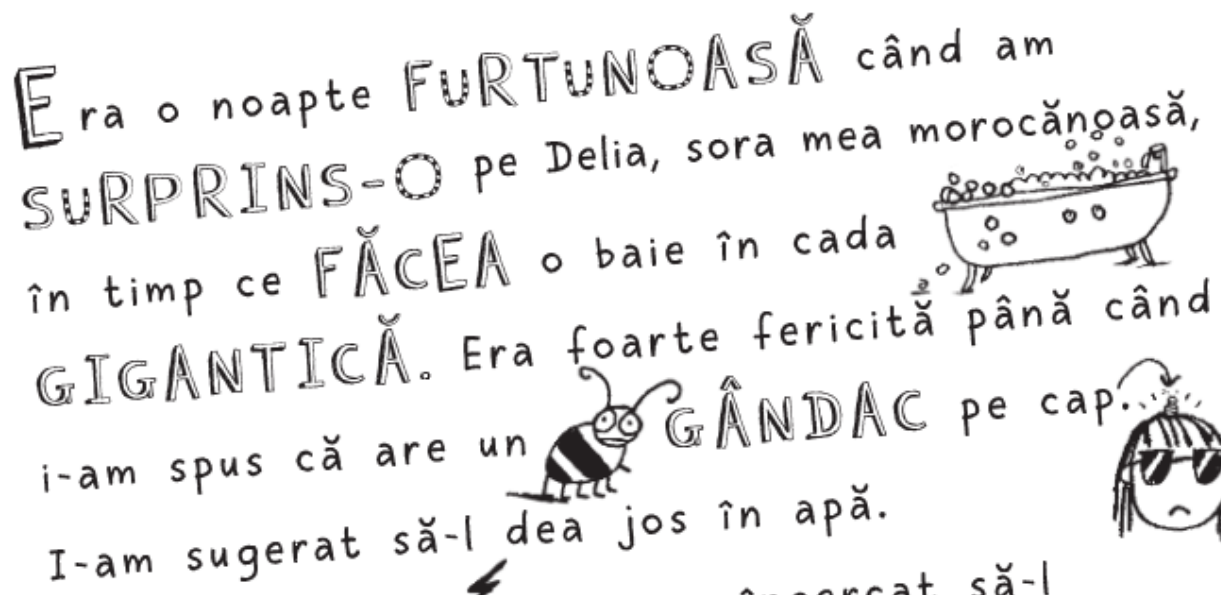 Era o noapte FURTUNOASĂ când am
SURPRINS-O pe Delia, sora mea morocănoasă,
în timp ce FĂCEA o baie în cada
GIGANTICĂ. Era foarte fericită până când
i-am spus că are un GÂNDAC pe cap.
I-am sugerat să-l dea jos în apă.
încercat să-l